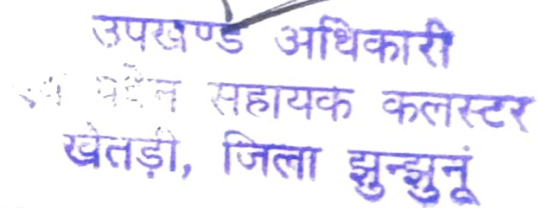 उपखण्ड अधिकारी
सहायक कलस्टर
खेतड़ी, जिला झुन्झुनूं